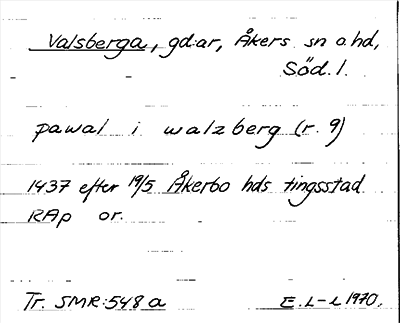 Valsberga, gd:ar, Åkers sn o. hd,
Söd. l.
pawal i walzberg (r. 9)
1437 efter 19/5 Åkerbo hds tingsstad
RAp or.
Tr. SMR: 548 a E. L-t 1970.